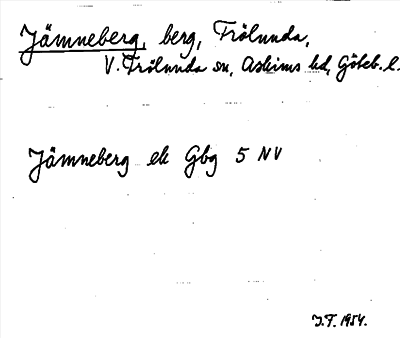 Jämneberg, berg, Frölunda,
V. Frölunda sn, Askims hd, Göteb. l.
Jämneberg ek Gbg 5 NV
J.F. 1954.